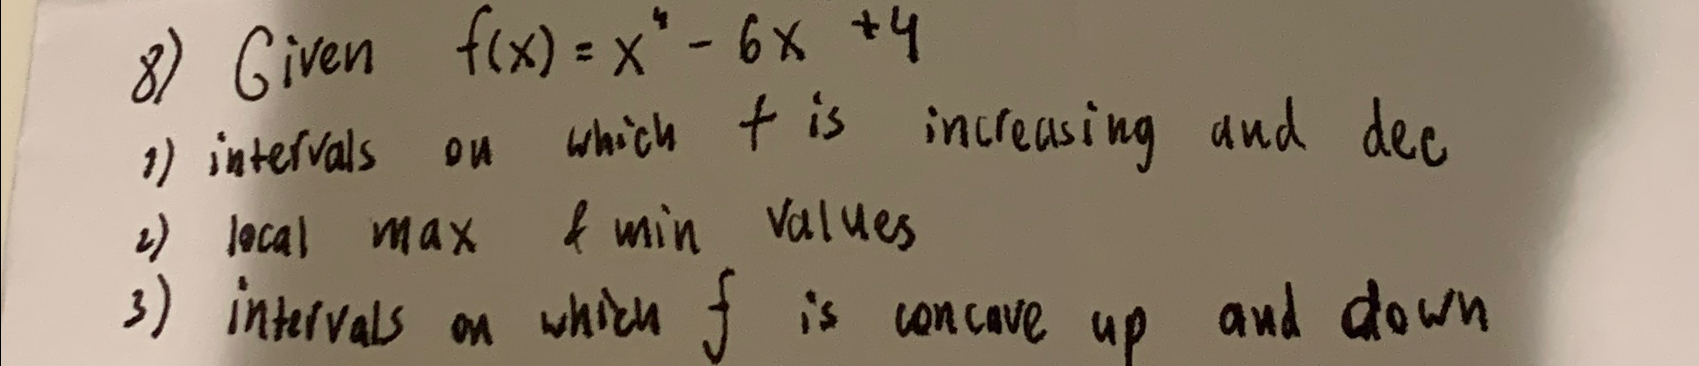 8) Given f(x) = x⁴ - 6x + 4
1) intervals on which f is increasing and dec
2) local max & min values
3) intervals on which f is concave up and down